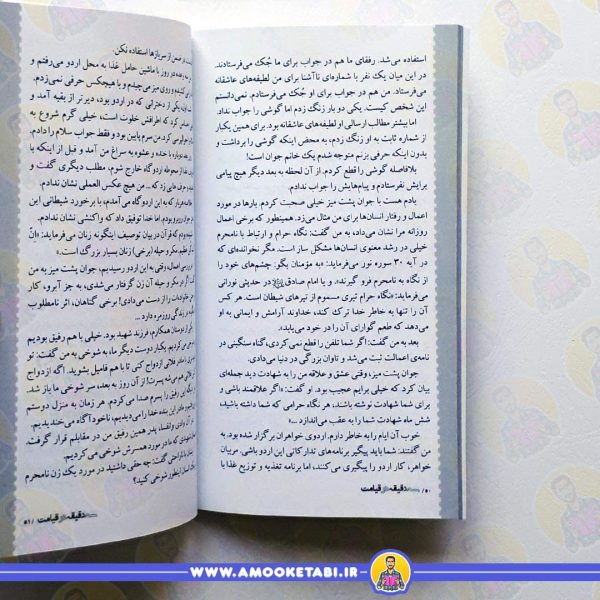 استفاده می‌شد. رفقای ما هم در جواب برای ما جُک می‌فرستادند.
در این میان یک نفر با شماره‌ای ناآشنا برای من لطیفه‌های عاشقانه
می‌فرستاد. من هم در جواب برای او جُک می‌فرستادم. نمی‌دانستم
این شخص کیست. یکی دو بار زنگ زدم اما گوشی را جواب نداد.
اما بیشتر مطالب ارسالی او لطیفه‌های عاشقانه بود. برای همین یکبار
از شماره ثابت به او زنگ زدم، به محض اینکه گوشی را برداشت و
بدون اینکه حرفی بزنم متوجه شدم یک خانم جوان است!
بلافاصله گوشی را قطع کردم. از آن لحظه به بعد دیگر هیچ پیامی
برایش نفرستادم و پیام‌هایش را جواب ندادم.
یادم هست با جوان پشت میز خیلی صحبت کردم. بارها در مورد
اعمال و رفتار انسان‌ها برای من مثال می‌زد. همینطور که برخی اعمال
روزانه مرا نشان می‌داد، به من گفت: نگاه حرام و ارتباط با نامحرم
خیلی در رشد معنوی انسان‌ها مشکل ساز است. مگر نخوانده‌ای که
در آیه ۳۰ سوره نور می‌فرماید: «به مؤمنان بگو. چشم‌های خود را
از نگاه به نامحرم فرو گیرند.» و یا امام صادق در حدیثی نورانی
می‌فرماید: «نگاه حرام تیری مسموم از تیرهای شیطان است. هر کس
آن را تنها به خاطر خدا ترک کند، خداوند آرامش و ایمانی به او
می‌دهد که طعم گوارای آن را در خود می‌یابد.»
بعد به من گفت: اگر شما تلفن را قطع نمی‌کردی، گناه سنگینی در
نامه‌ی اعمالت ثبت می‌شد و تاوان بزرگی در دنیا می‌دادی.
جوان پشت میز، وقتی عشق و علاقه من را به شهادت دید جمله‌ای
بیان کرد که خیلی برایم عجیب بود. او گفت: «اگر علاقمند باشی و
برای شما شهادت نوشته باشند، هر نگاه حرامی که شما داشته باشید،
شش ماه شهادت شما را به عقب می‌اندازد ...»
خوب آن ایام را به خاطر دارم. اردوی خواهران برگزار شده بود. به
من گفتند: شما باید پیگیر برنامه‌های تدارکاتی این اردو باشی. مربیان
خواهر، کار اردو را پیگیری می‌کنند، اما برنامه تغذیه و توزیع غذا با
۵۰/ دقیقه در قیامت
از سربازها استفاده نکن.
با ماشین حامل غذا به محل اردو می‌رفتم و
روی میز می‌چیدم و با هیچکس حرفی نمی‌زدم.
یکی از دخترانی که در اردو بود، دیرتر از بقیه آمد و
که اطرافش خلوت است، خیلی گرم شروع به
من سرم پایین بود و فقط جواب سلام را دادم.
دوباره با خنده و عشوه به سراغ من آمد و قبل از اینکه با
محوطه اردوگاه خارج شوم، مطلب دیگری گفت و
من هیچ عکس العملی نشان ندادم.
به این اردوگاه می‌آمدم، با برخورد شیطانی این
روبرو بودم. اما خدا توفیق داد که واکنشی نشان ندادم.
که قرآن در بیان توصیف اینگونه زنان می‌فرماید: «إنَّ
مکر و حیله (برخی) زنان بسیار بزرگ است.»
اعمال وقتی به این اردو رسیدیم، جوان پشت میز به من
مکر و حیله آن زن گرفتار می‌شدی، به جز آبرو، کار
را از دست می‌دادی! برخی گناهان، اثر نامطلوب
در زندگی روزمره دارد ...
دوستان همکارم، فرزند شهید بود. خیلی با هم رفیق بودیم
می‌کردیم. یکبار دوست دیگر ما، به شوخی به من گفت: تو
باید با فلانی ازدواج کنی تا با هم فامیل بشوید. اگر ازدواج
هم می‌شه پسرت! از آن روز به بعد، سر شوخی ما باز شد.
این رفیق را پسرم صدا می‌کردم. هر زمان به منزل دوستم
مادر این بنده خدا را می‌دیدیم، ناخودآگاه می‌خندیدیم.
پدر همین رفیق من در مقابلم قرار گرفت.
شهیدی که ما در مورد همسرش شوخی می‌کردیم.
با ناراحتی گفت: چه حقی داشتید در مورد یک زن نامحرم
اینطور شوخی کنید؟
دقیقه در قیامت /۵۱
WWW.AMOOKETABI.IR